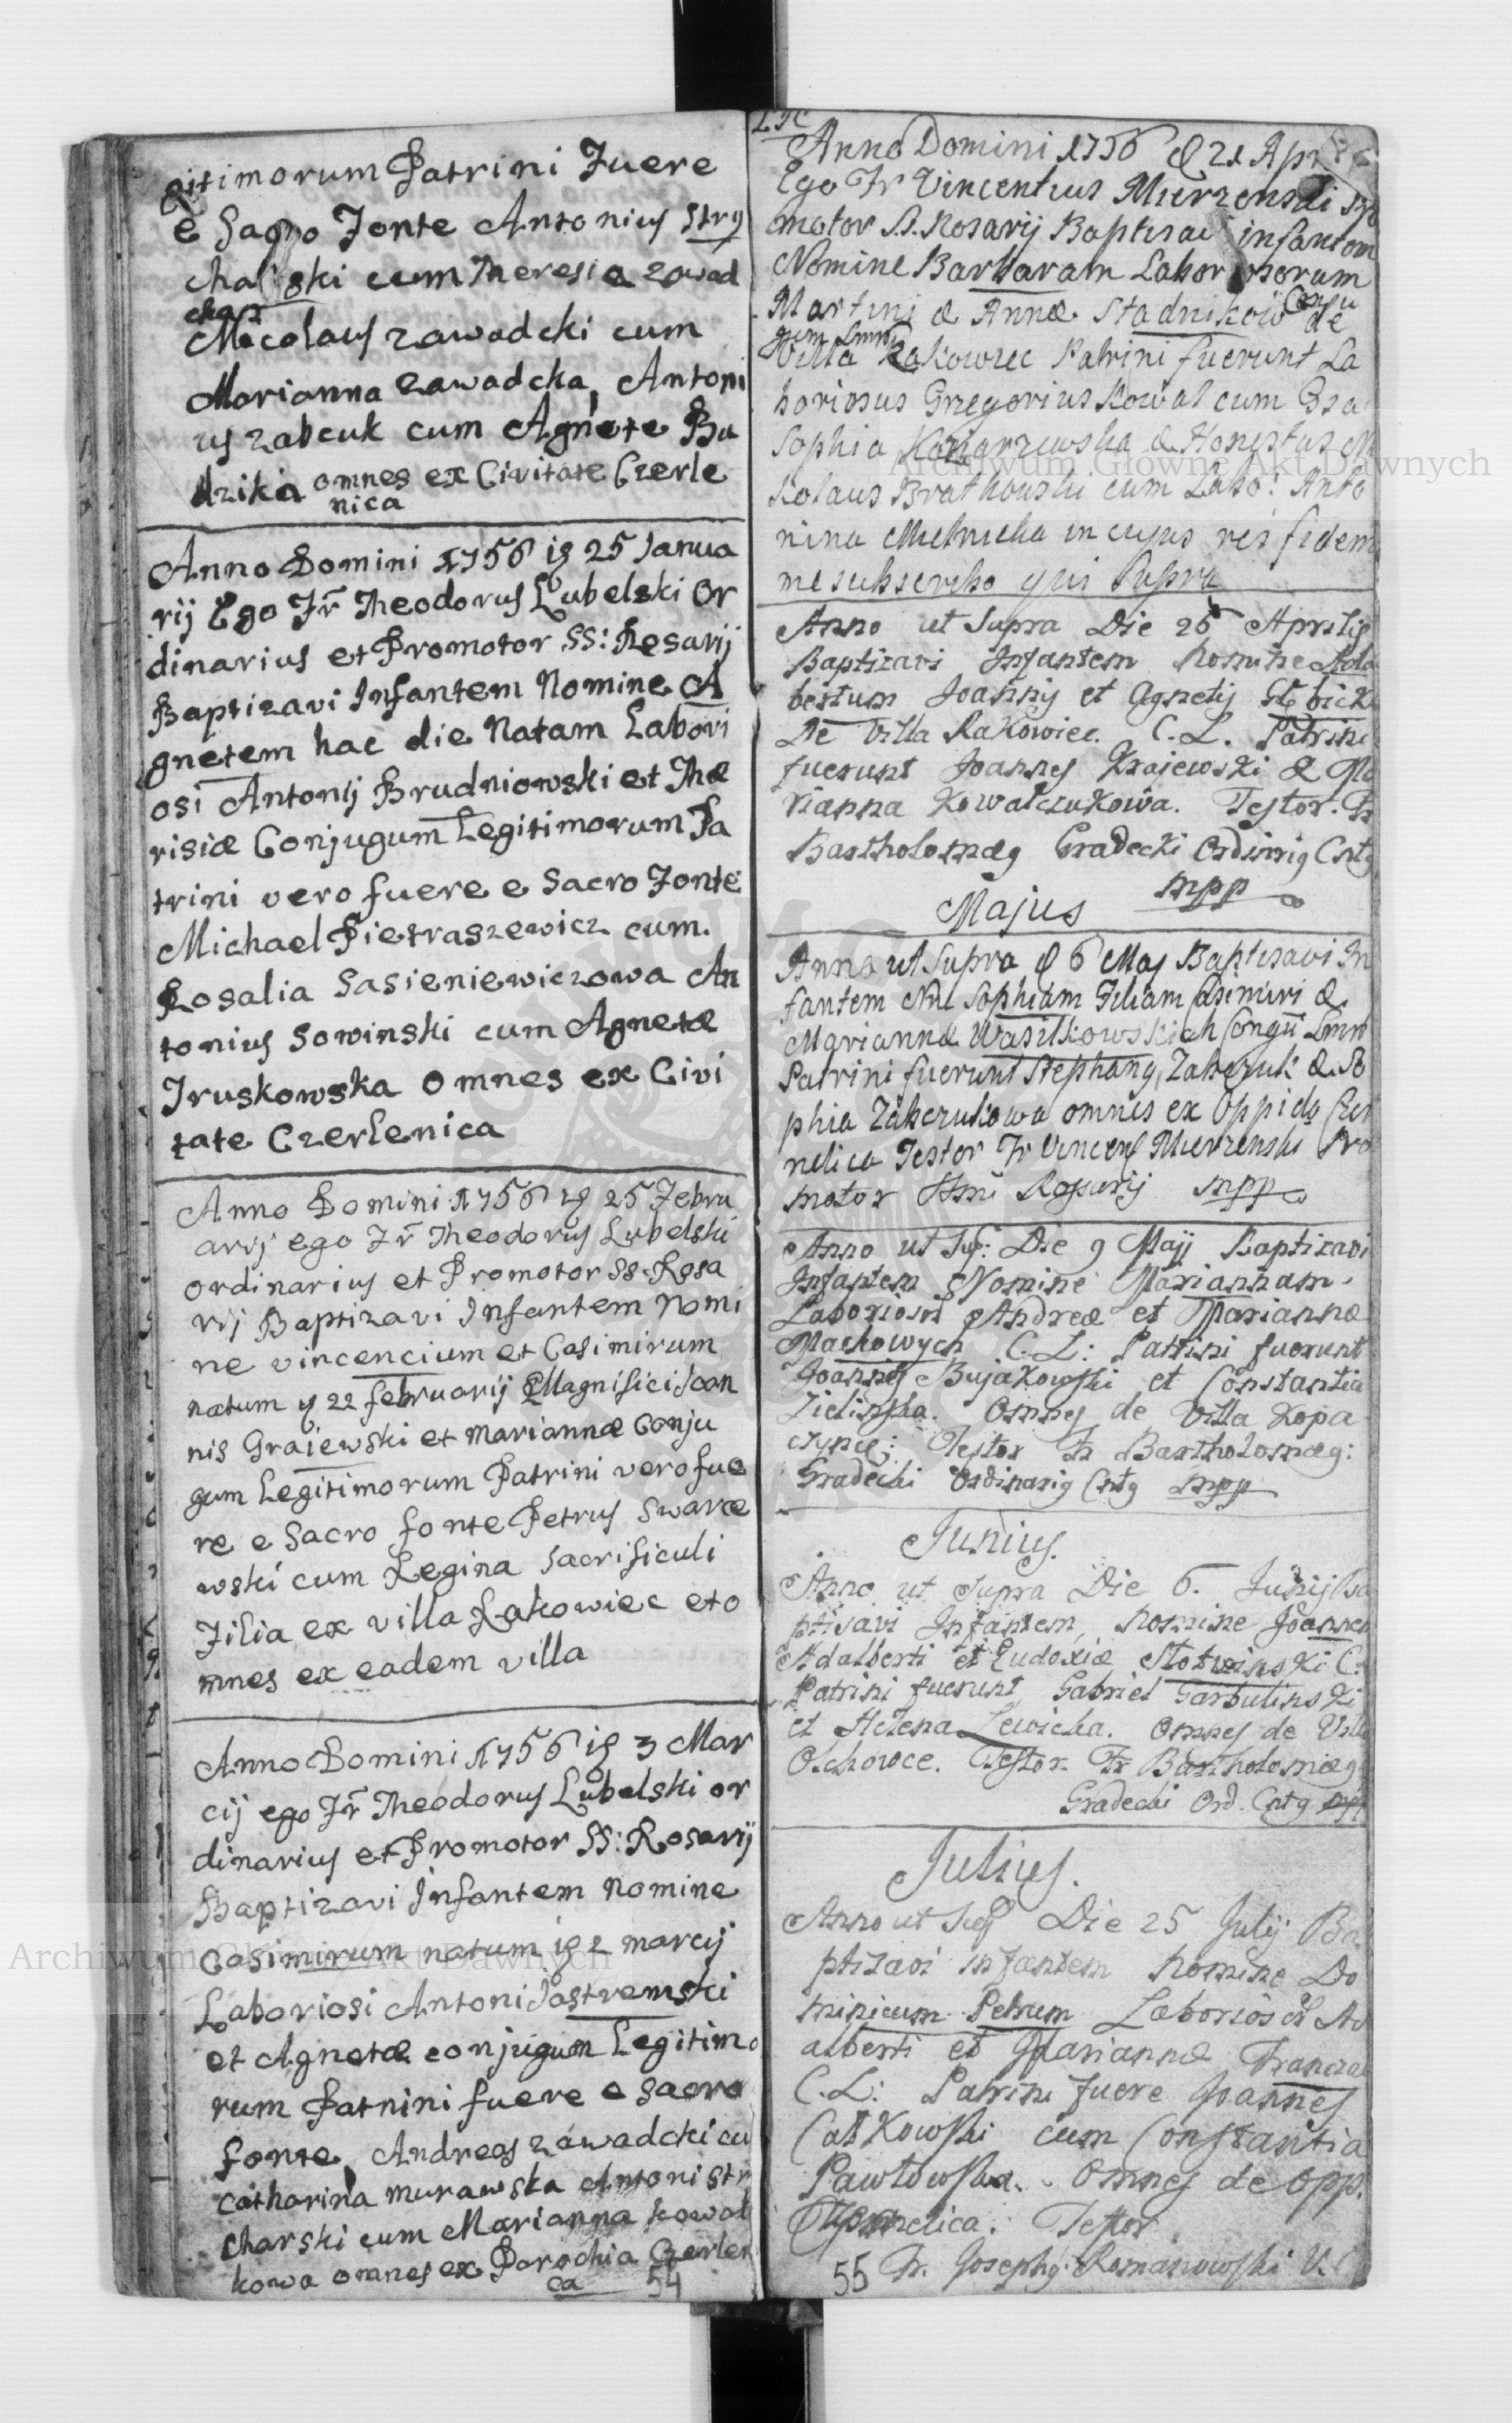 gitimorum Patrini Fuere
e Sacro Fonte Antonius Stry
chalski cum Theresia zawad
cka
Nicolaus zawadcki cum
Marianna zawadcka, Antoni
us zabcuk cum Agnete Bu
dzika omnes ex Civitate Czerle
nica
Anno Domini 1756 is 25 Janua
rij Ego Fr Theodorus Lubelski Or
dinarius et Promotor SS: Rosarij
Baptizavi Infantem Nomine A
gnetem hac die Natam Labori
osi Antonij Brudniowski et The
risiæ Conjugum Legitimorum Pa
trini vero fuere e Sacro Fonte
Michael Pietraszewicz cum
Rosalia Sasieniewiczowa An
tonius Sowinski cum Agnetæ
Truskowska Omnes ex Civi
tate Czerlenica
Anno Domini 1756 is 25 Febru
arij ego Fr Theodorus Lubelski
ordinarius et Promotor SS Rosa
rij Baptizavi Infantem Nomi
ne vincencium et Casimirum
natum is 22 februarij Magnifici Joan
nis Graiewski et Mariannæ Conju
gum Legitimorum Patrini vero fue
re e Sacro fonte Petrus Swarce
wski cum Regina Sacrificuli
Filia ex villa Rakowiec et o
mnes ex eadem villa
Anno Domini 1756 is 3 Mar
cij ego Fr Theodorus Lubelski or
dinarius et Promotor SS: Rosarij
Baptizavi Infantem Nomine
Casimirum natum is 2 marcij
Laboriosi Antoni Jastremski
et Agnetæ conjugum Legitimo
rum Patrini fuere e sacro
fonte Andreas zawadcki cu
Catharina murawska Antoni Str
charski cum Marianna kowal
kowa omnes ex Parochia Czerlen
ca 54
Anno Domini 1756 d 21 Apr
Ego Fr Vincentius Mierzenski
motor S.S. Rosarij Baptisavi infantem
Nomine Barbaram Laboriosorum
Martini & Annæ Stadnikow Conju
gum Lmm de
Villa Rakowiec Patrini fuerunt La
boriosus Gregorius Kowal cum
Sophia & Honestus
kolaus Bratkowski cum Labo: Anto
nina Melnicka in cujus rei fidem
me subscribo qui supra
Anno ut Supra Die 26 Aprilis
Baptizavi Infantem Nomine Ada
bertum Joannis et Agnetis
De Villa Rakowiec. C.L. Patrini
fuerunt Joannes Krajewski & Ma
rianna Kowalczukowa. Testor. Fr
Bartholomæg Gradecki Ordinrig Cntg
mpp
Majus
Anno ut Supra d 6 Maj Baptisavi In
fantem Sophiam Filiam Casimiri &
Mariannæ Wasilkowskich Lmm
Patrini fuerunt Stephang Zabczuk & So
phia Zabczukowa omnes ex Oppido Czer
nelica Testor Fr Vincens Mierzenski Pro
motor Rosarij mpp
Anno ut Sup: Die 9 Maji Baptizavi
Infantem Nomine Mariannam
Andreæ et Mariannæ
Machowych C.L: Patrini fuerunt
Joannes Bujakowski et Constantia
Zielinska. Omnes de Villa Kopa
Testor Fr Bartholomæg:
Gradecki Ordinarig Cntg mpp
Junius.
Anno ut Supra Die 6. Junij Ba
ptisavi Infantem, Nomine Joannem
Adalberti et Eudoxiæ Slotwinski C.
Patrini fuerunt Gabriel Garbulinski
et Helena Lewicka. Omnes de Villa
Olchowce. Testor. Fr Bartholomæg
Gradecki Ord. Cntg mpp
Julius.
Anno ut Sup Die 25 Julij Ba
ptizavi infantem Nomine Do
minicum Petrum Ad
alberti et Mariannæ
C.L: Patrini fuere Joannes
Catkowski cum Constantia
Pawlowska. Omnes de Opp.
Czernelica. Testor
55 Fr. Josephg Romanowski
Archiwum Główne Akt Dawnych
Archiwum Główne Akt Dawnych